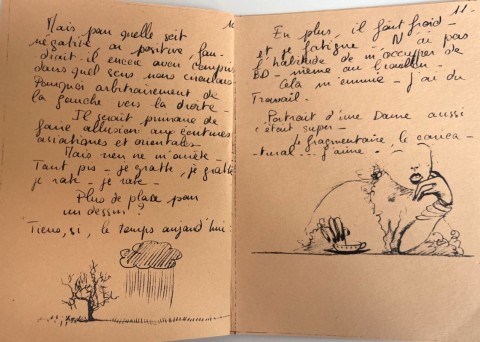 10
Mais pour quelle soit
négative ou positive, fau-
drait-il encore avoir compris
dans quel sens nous circulons
Pourquoi arbitrairement de
la gauche vers la droite -
Il serait primaire de
faire allusion aux écritures
asiatiques et orientales
Mais rien ne m'arrête -
Tant pis - je gratte, je gratte
je rate - je rate -
Plus de place pour
un dessin ?
Tiens, si, le temps aujourd'hui :
11 -
En plus, il fait froid -
et je fatigue - N'ai pas
l'habitude de m'occuper de
BD - même au
Cela m'ennuie - j'ai du
Travail -
Portrait d'une Dame aussi
c'était super -
Le fragmentaire, le
j'aime